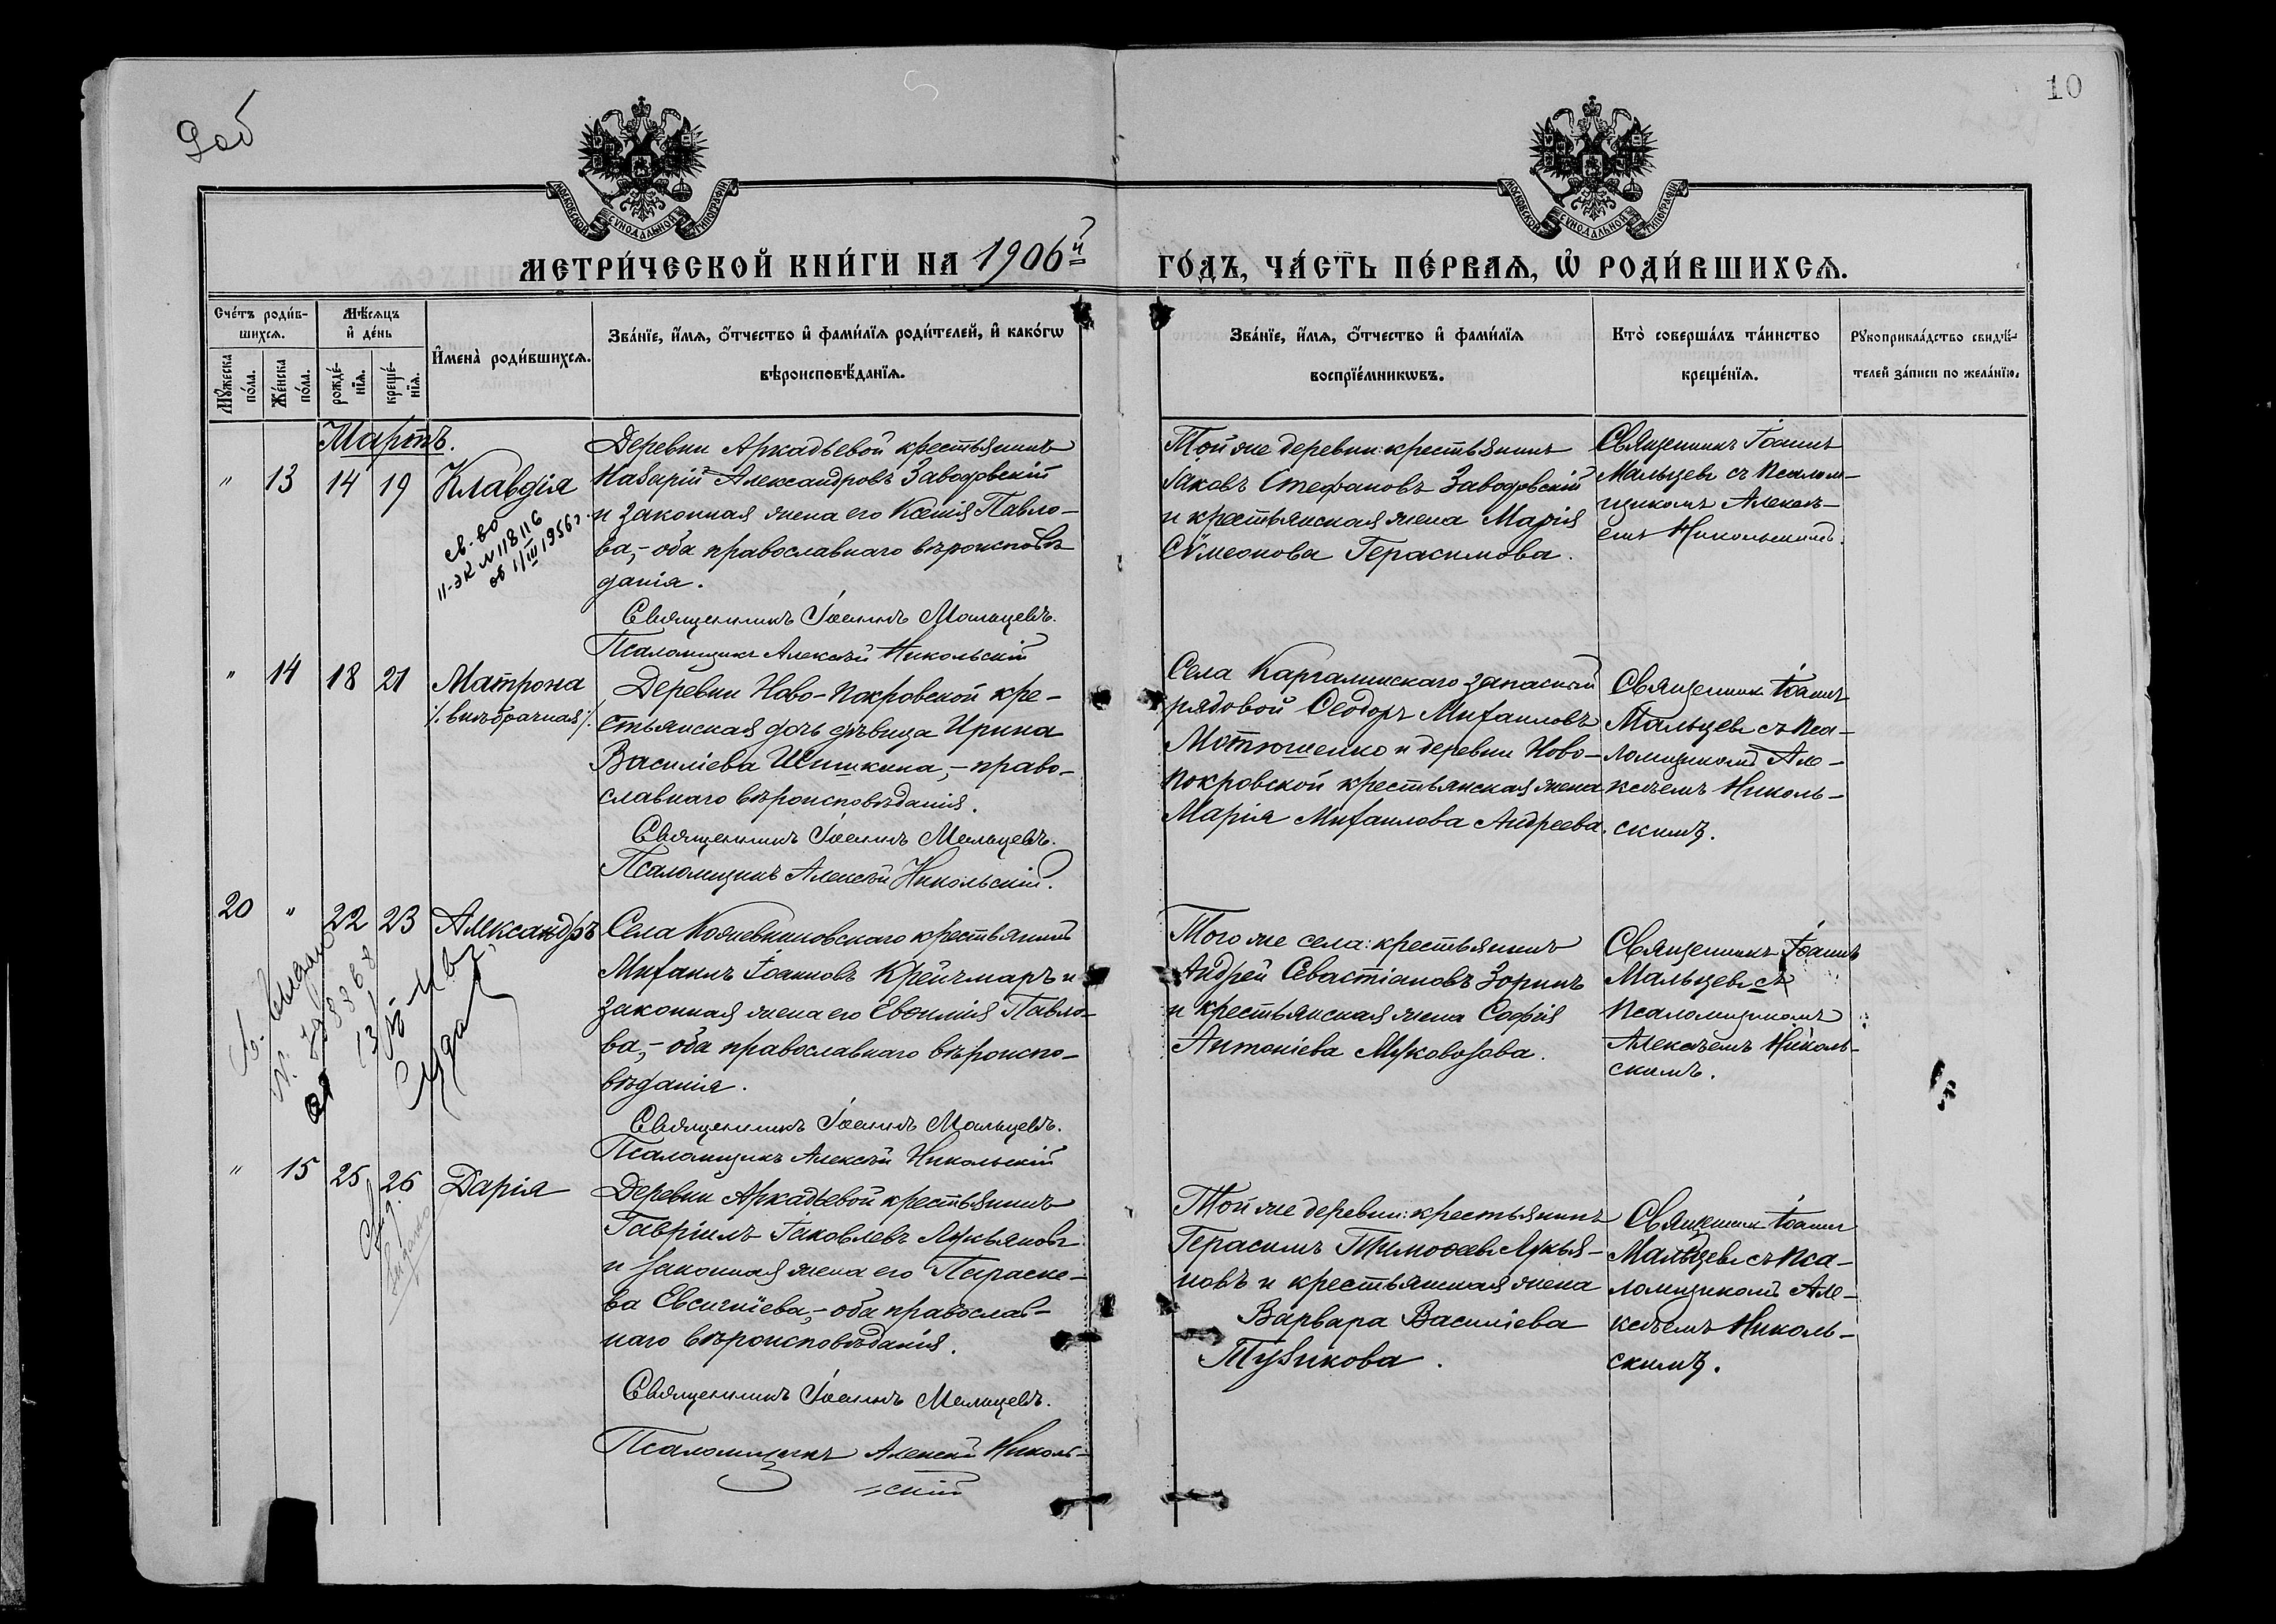 9 об
10
МОСКОВСКОЙ СѴНОДАЛЬНОЙ ТИПОГРАФІИ
МОСКОВСКОЙ СѴНОДАЛЬНОЙ ТИПОГРАФІИ
МЕТРИ́ЧЕСКОЙ КНИ́ГИ НА 1906й
ГО́ДЪ, ЧА́СТЬ ПЕ́РВАѦ, Ѡ҆ РОДИ́ВШИХСѦ.
Сче́тъ роди́в-
шихсѧ.
Мѣ́сѧцъ
и҆ де́нь
Мꙋ́жеска
по́ла.
Же́нска
по́ла.
рожде́-
нїѧ.
креще́-
нїѧ.
И҆мена̀ роди́вшихсѧ.
Зва́нїе, и҆́мѧ, ѻ҆́тчество и҆ фами́лїѧ роди́телей, и҆ како́гѡ
вѣроисповѣ́данїѧ.
Зва́нїе, и҆́мѧ, ѻ҆́тчество и҆ фами́лїѧ
воспрїе́мникѡвъ.
Кто̀ соверша́лъ та́инство
креще́нїѧ.
Рꙋкоприкла́дство свидѣ́-
телей за́писи по жела́нїю.
Мартъ.
" 13 14 19 Клавдія
св-во
II-ЭК № 118116
об 1/III 1956 г.
Деревни Аркадьевой крестьянинъ
Назарій Александровъ Заводовскій
и законная жена его Ксенія Павло-
ва,- оба православнаго вѣроисповѣ
данія.
Священникъ Іоаннъ Мальцевъ.
Псаломщикъ Алексѣй Никольскій
Той же деревни: крестьянинъ
Іаковъ Стефановъ Заводовскій
и крестьянская жена Марія
Сѵмеонова Герасимова.
Священникъ Іоаннъ
Мальцевъ съ псалом-
щикомъ Алексѣ-
емъ Никольскимъ.
" 14 18 21 Матрона
/. внѣбрачная ./
Деревни Ново-Покровской кре-
стьянская дочь дѣвица Ирина
Василіева Шишкина,- право-
славнаго вѣроисповѣданія.
Священникъ Іоаннъ Мальцевъ.
Псаломщикъ Алексѣй Никольскій.
Села Каргалинскаго запасный
рядовой Ѳеодоръ Михаиловъ
Мотюшенко и деревни Ново-
покровской крестьянская жена
Марія Михаилова Андреева.
Священникъ Іоаннъ
Мальцевъ съ пса-
ломщикомъ Але-
ксѣемъ Николь-
скимъ.
20 " 22 23 Александръ
Села Кожевниковскаго крестьянинъ
Михаилъ Іоанновъ Крейчмаръ и
законная жена его Евфимія Павло-
ва,- оба православнаго вѣроиспо-
вѣданія.
Священникъ Іоаннъ Мальцевъ.
Псаломщикъ Алексѣй Никольскій
Того же села: крестьянинъ
Андрей Севастіановъ Зоринъ
и крестьянская жена Софія
Антоніева Муковозова.
Священникъ Іоаннъ
Мальцевъ съ
псаломщикомъ
Алексѣемъ Николь-
скимъ.
" 15 25 26 Дарія
Деревни Аркадьевой крестьянинъ
Гавріилъ Іаковлевъ Лукьяновъ
и законная жена его Параске-
ва Евсигніева,- оба православ-
наго вѣроисповѣданія.
Священникъ Іоаннъ Мальцевъ.
Псаломщикъ Алексѣй Николь-
скій
Той же деревни: крестьянинъ
Герасимъ Тимоѳеевъ Лукья-
новъ и крестьянская жена
Варвара Василіева
Тузикова.
Священникъ Іоаннъ
Мальцевъ съ пса-
ломщикомъ Але-
ксѣемъ Николь-
скимъ.